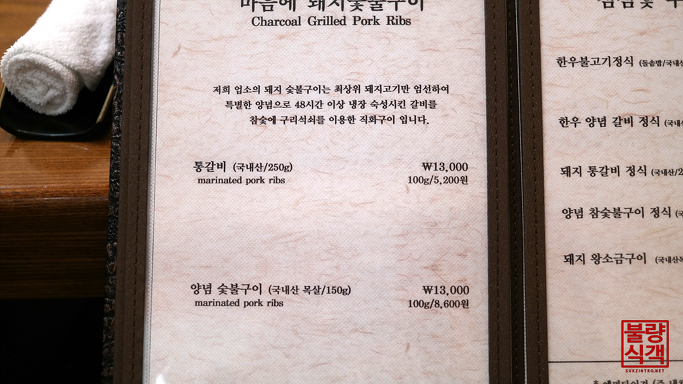 마음에 돼지숯불구이
Charcoal Grilled Pork Ribs
저희 업소의 돼지 숯불구이는 최상위 돼지고기만 엄선하여
특별한 양념으로 48시간 이상 냉장 숙성시킨 갈비를
참숯에 구리석쇠를 이용한 직화구이 입니다.
통갈비 (국내산/250g) ₩13,000
marinated pork ribs 100g/5,200원
양념 숯불구이 (국내산 목살/150g) ₩13,000
marinated pork ribs 100g/8,600원
한우불고기정식 (돌솥밥/국내산
한우 양념 갈비 정식
돼지 통갈비 정식 (국내산/2
양념 참숯불구이 정식
돼지 왕소금구이 (국내산
불량식객
SUKZINTRO.NET